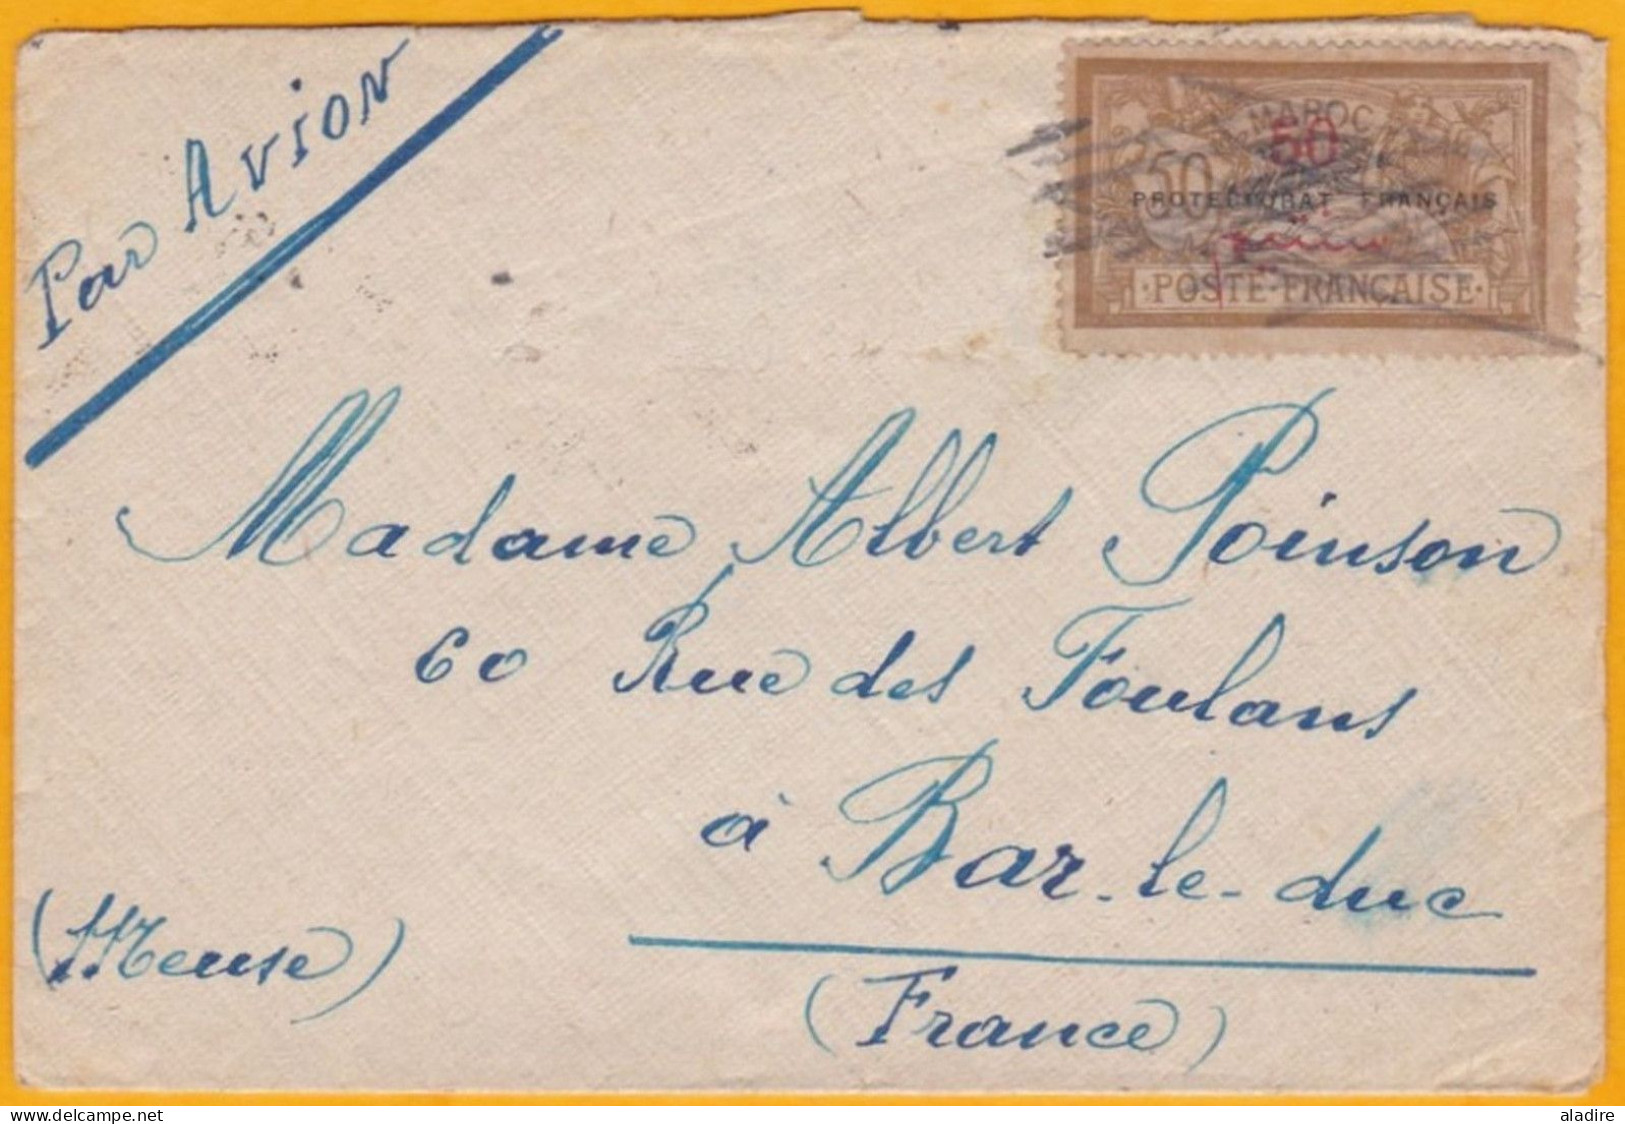 Par Avion
MAROC
50
50
PROTECTORAT FRANÇAIS
·POSTE·FRANÇAISE·
Madame Albert Poinson
60 Rue des Foulans
à Bar-le-duc
(Meuse)
(France)
www.delcampe.net
aladire